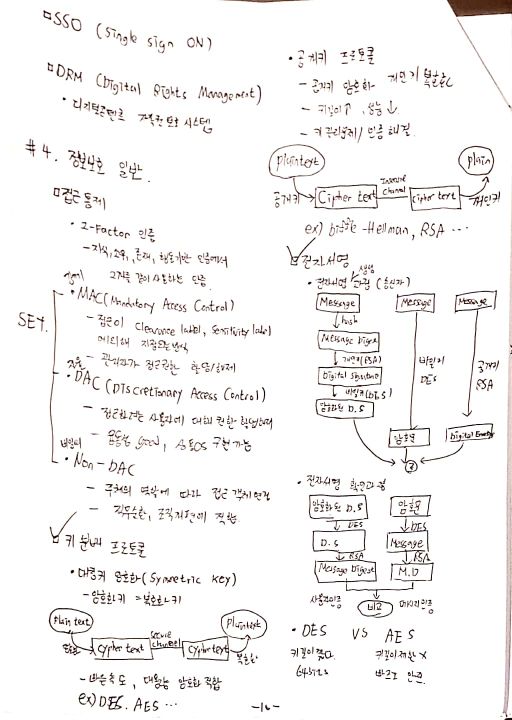 SSO (Single sign ON)
DRM (Digital Rights Management)
• 디지털콘텐츠 저작권 보호 시스템
#4. 정보보호 일반
접근통제
• 2-Factor 인증
- 지식, 소유, 존재, 행동기반 인증에서
2가지를 같이 사용하는 인증
SET.
• MAC (Mandatory Access Control)
- 접근이 Clearance label, Sensitivity label
에 의해 지정되는 방식
- 관리자가 접근권한 할당/해제
• DAC (Discretionary Access Control)
- 접근하려는 사용자에 대해
- 유동성 good, 구현 가능
• Non-DAC
- 주체의 역할에 따라 접근
- 직무순환, 조직개편에 적합
키 분배 프로토콜
• 대칭키 암호화 (Symmetric key)
- 암호화키 = 복호화키
Plain text
Plaintext
Cypher text
secure channel
Cypher text
복호화
- 빠른 속도, 대용량 암호화 적합
ex) DES. AES ...
• 공개키 프로토콜
- 공개키 암호화 개인키 복호화
- 키길이↑, 성능↓.
- 키 관리문제/ 인증 해결.
plaintext
plain
공개키
Cipher text
Insecure channel
cipher text
개인키
ex) Diffie-Hellman, RSA ...
전자서명
• 전자서명 생성 과정 (송신자)
Message
Message
Message
hash
Message Digest
개인키(RSA)
Digital signature
비밀키(DES)
암호화된 D.S
비밀키
DES
공개키
RSA
암호문
Digital Envelop
• 전자서명 확인과정
암호화된 D.S
암호문
DES
DES
D.S
Message
RSA
RSA
Message Digest
M.D
사용자인증
비교
메시지인증
• DES VS AES
키길이 짧다. 키길이제한 X
64bits 빠르고 안전
-16-